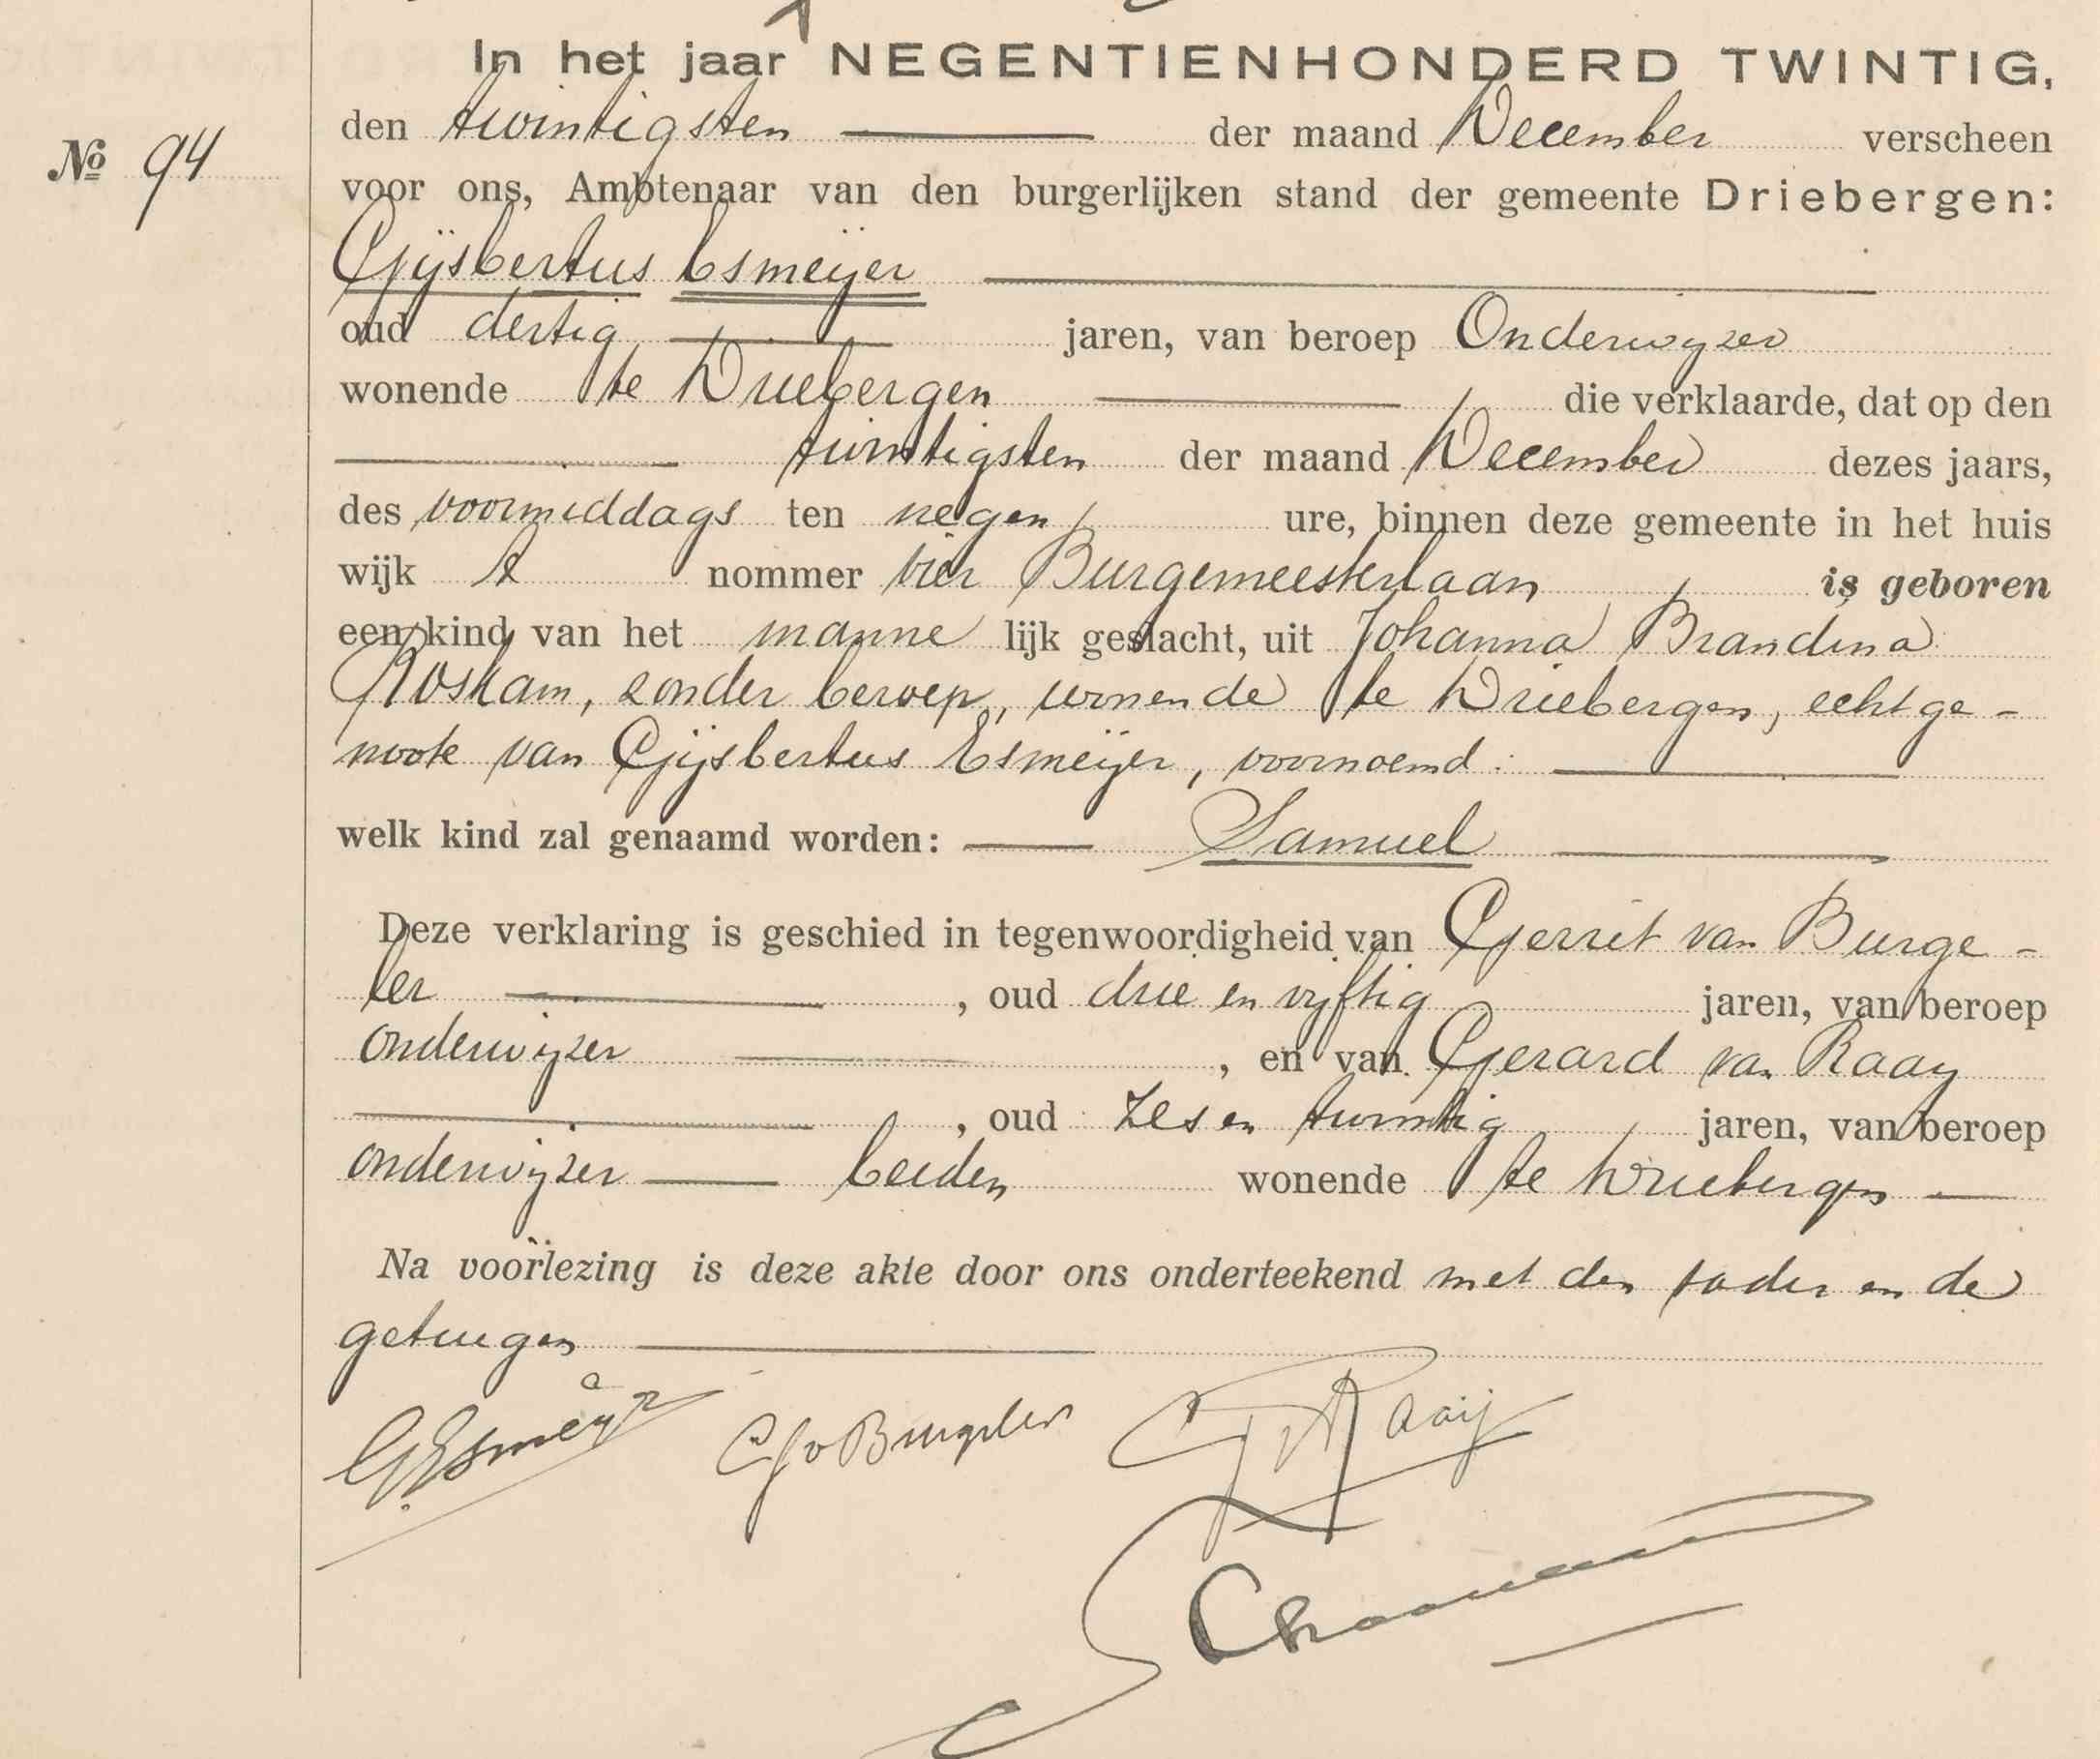 In het jaar NEGENTIENHONDERD TWINTIG,
No 94
den twintigsten der maand December verscheen
voor ons, Ambtenaar van den burgerlijken stand der gemeente Driebergen:
Gijsbertus Esmeijer
oud dertig jaren, van beroep Onderwijzer
wonende te Driebergen die verklaarde, dat op den
twintigsten der maand December dezes jaars,
des voormiddags ten negen ure, binnen deze gemeente in het huis
wijk nommer vier Burgemeesterlaan is geboren
een kind van het manne lijk geslacht, uit Johanna Brandina
Roskam, zonder beroep, wonende te Driebergen, echtge-
noote van Gijsbertus Esmeijer, voornoemd:
welk kind zal genaamd worden: Samuel
Deze verklaring is geschied in tegenwoordigheid van Gerrit van Burge-
ler, oud drie en vijftig jaren, van beroep
onderwijzer, en van Gerard van Raay
, oud zes en twintig jaren, van beroep
onderwijzer beiden wonende te Driebergen
Na voorlezing is deze akte door ons onderteekend met den vader en de
getuigen
G Esmeijer G v Burgeler G v Raaij